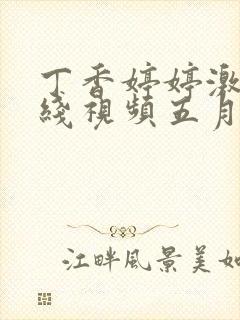 丁香婷婷激
綫視頻五月
江畔風景美如